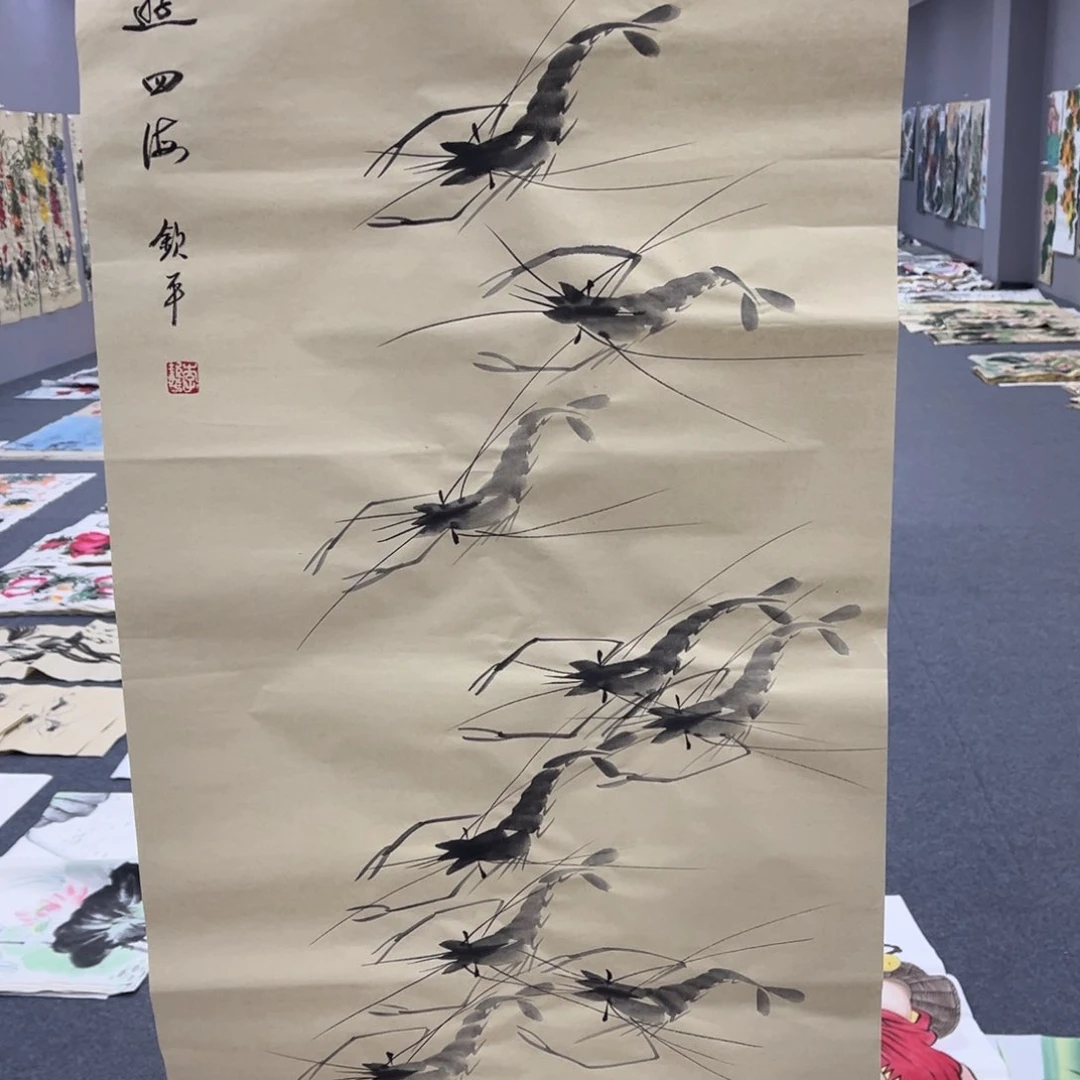 遊四海
欽平